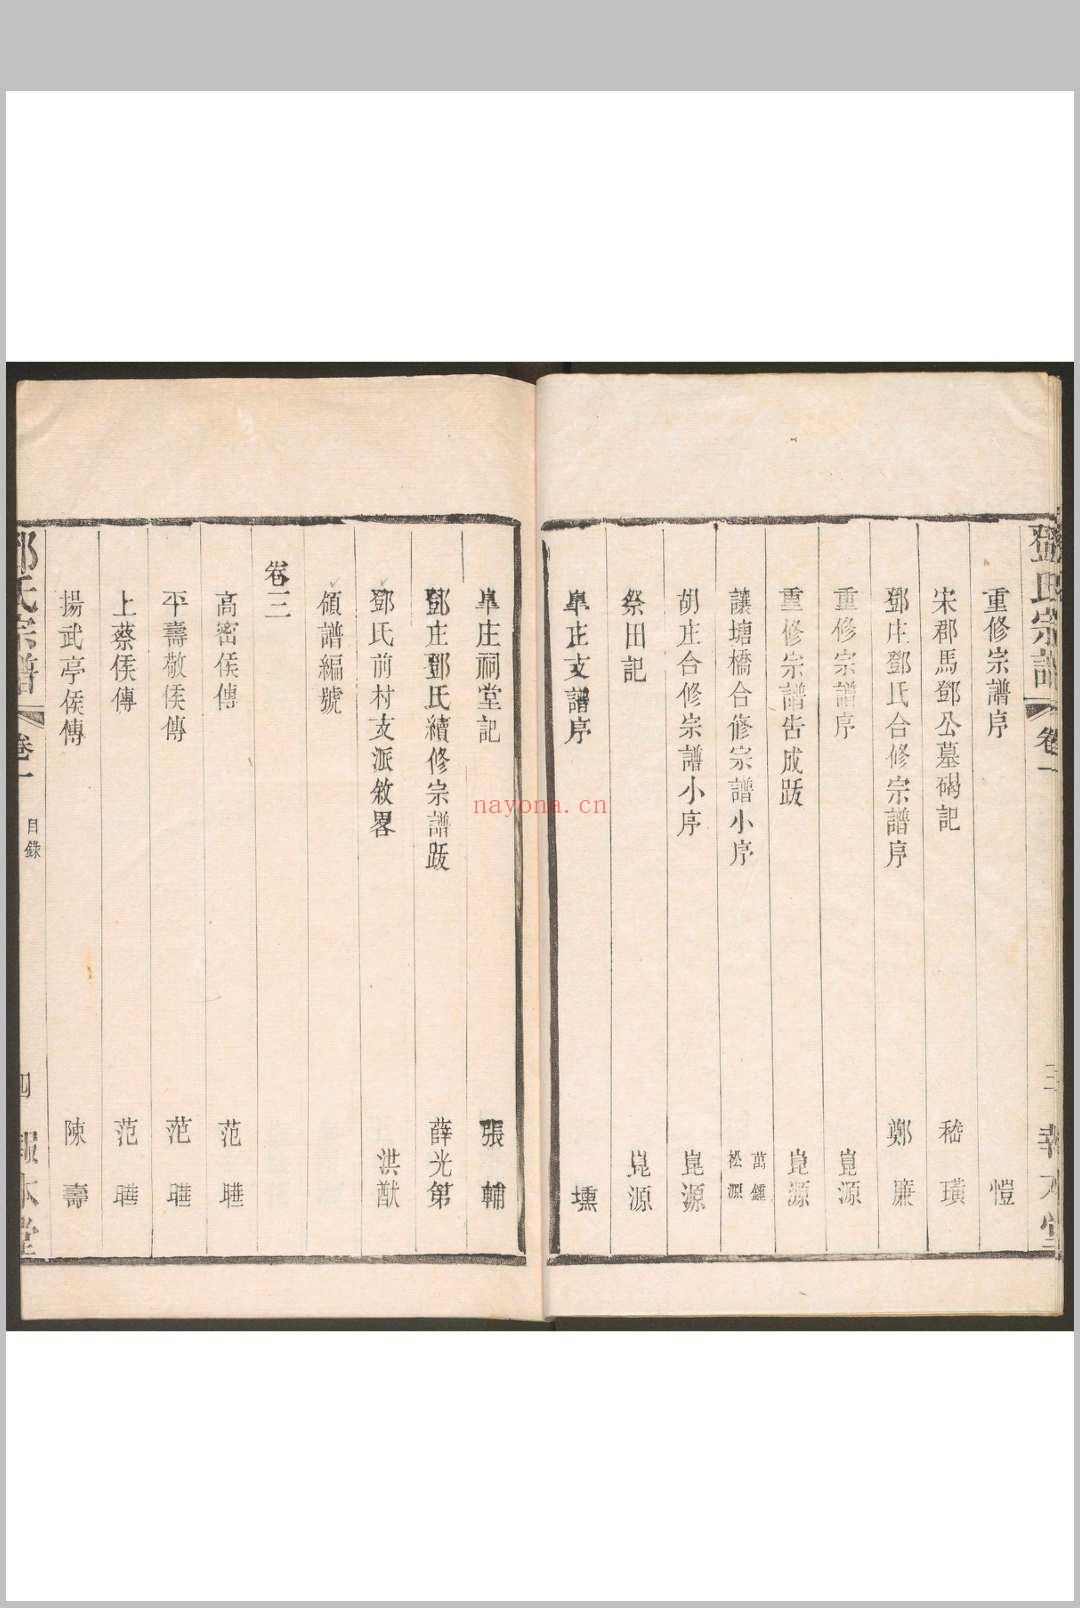 鄧氏宗譜 卷一 三 報本堂
重修宗譜序 愷
宋郡馬鄧公墓碣記 嵇璜
鄧庄鄧氏合修宗譜序 鄭廉
重修宗譜序 崑源
重修宗譜告成跋 崑源
讓塘橋合修宗譜小序 萬鍾 松源
胡庄合修宗譜小序 崑源
祭田記 崑源
阜庄支譜序 壎
阜庄祠堂記 張輔
鄧庄鄧氏續修宗譜跋 薛光第
鄧氏前村支派敘畧 洪猷
領譜編號
卷二
高密侯傳 范曄
平壽敬侯傳 范曄
上蔡侯傳 范曄
揚武亭侯傳 陳壽
鄧氏宗譜 卷一 目錄 四 報本堂
nayona.cn